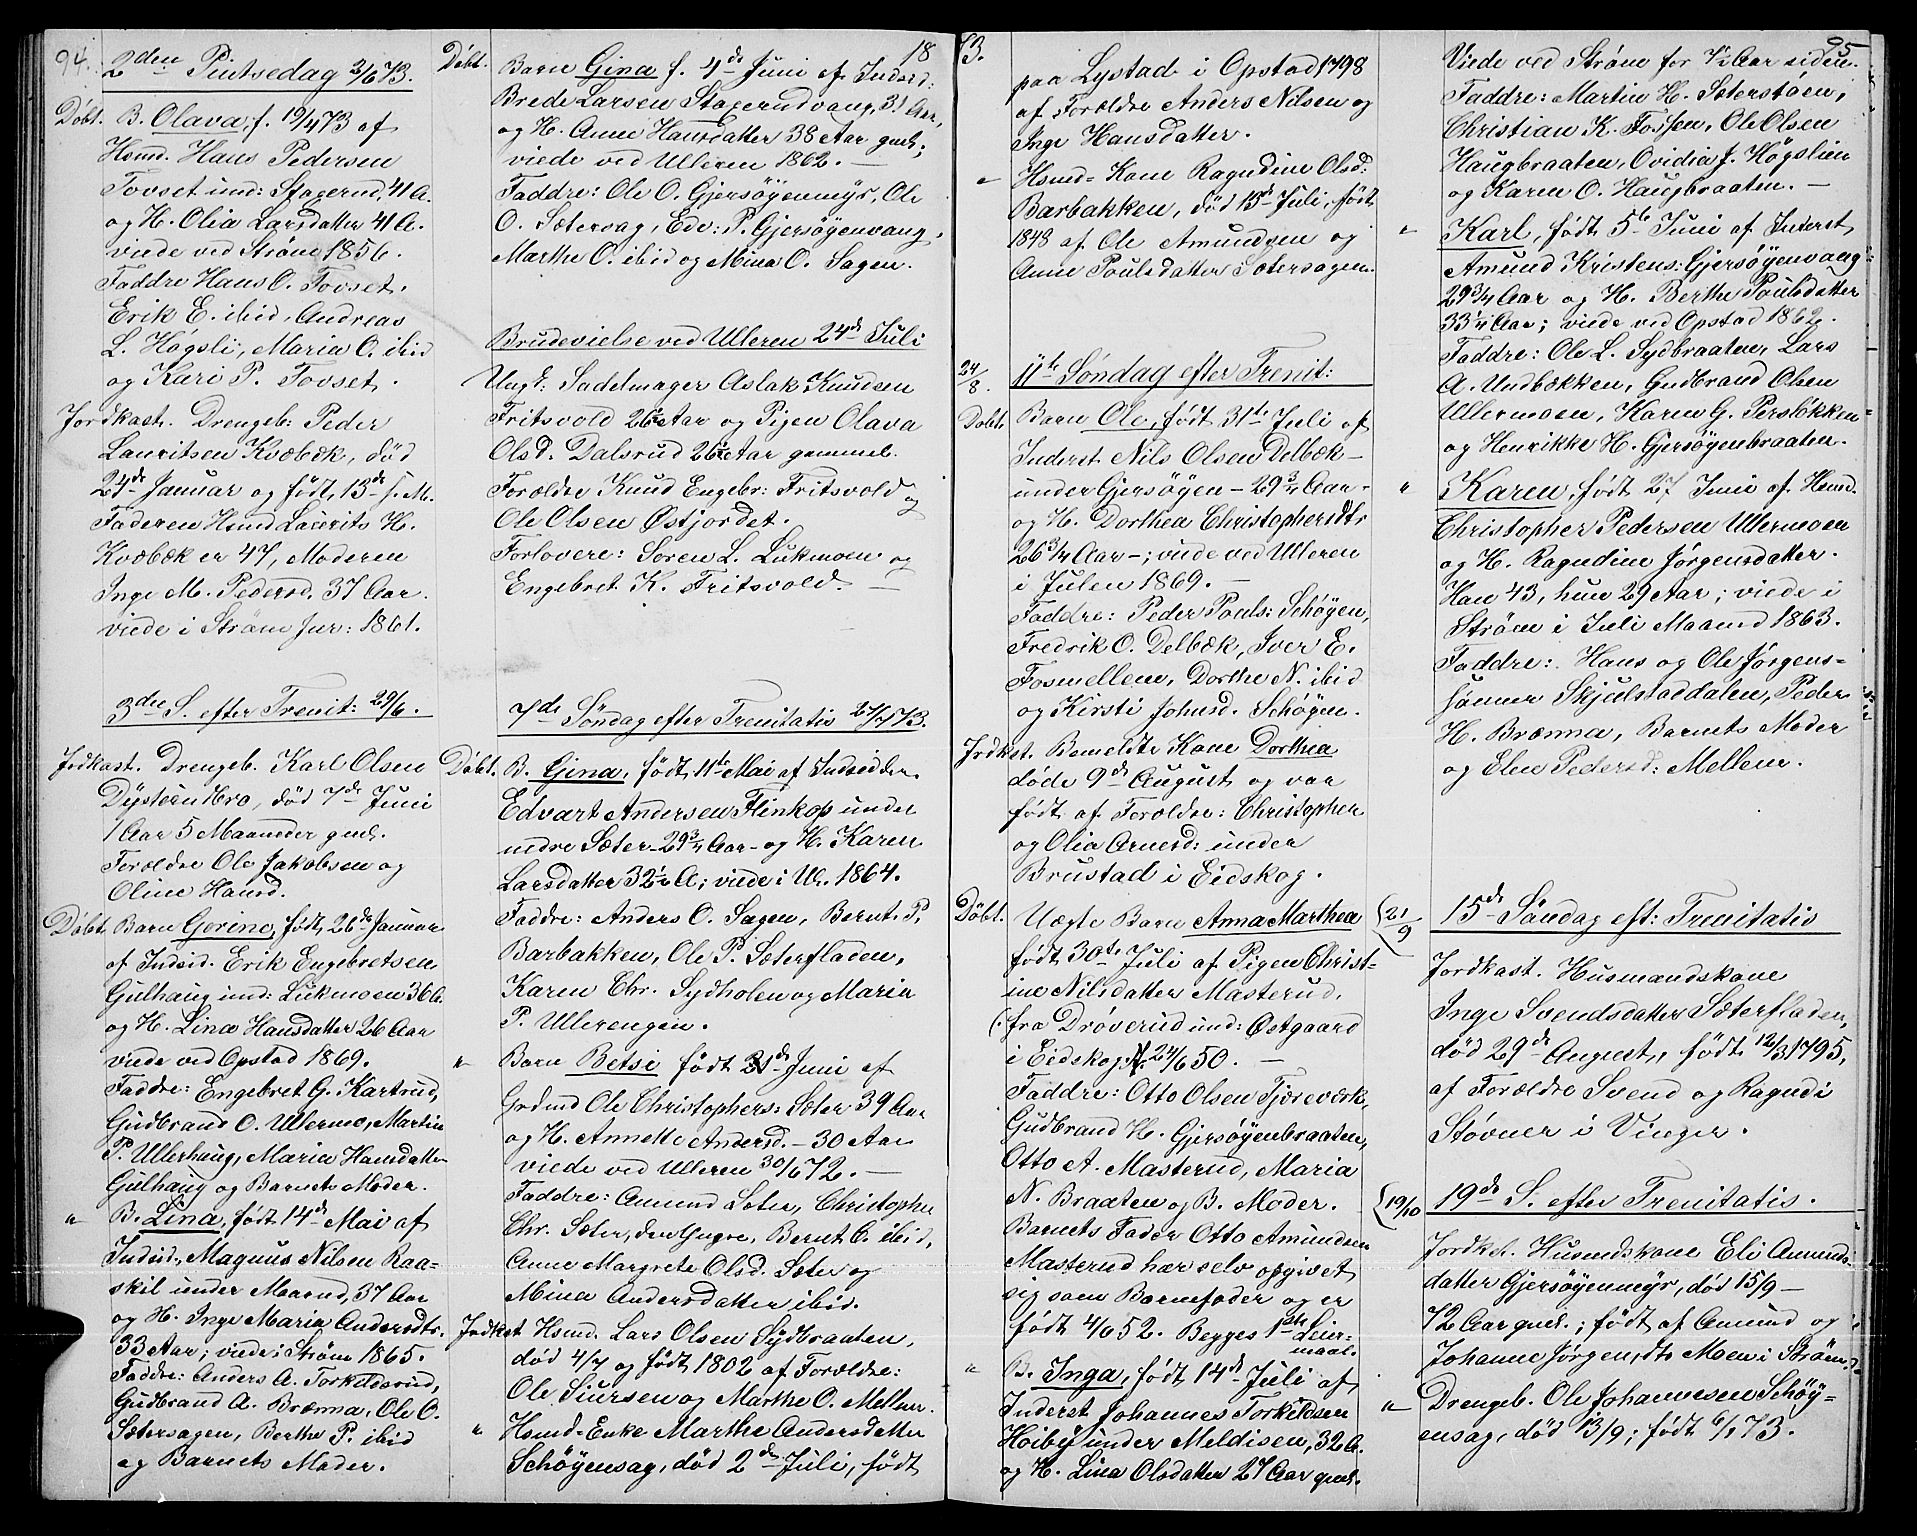 94.
2den Pintsedag 2/6 73.
Døbt. B. Olava, f. 19/4 73 af
Hsmd. Hans Pedersen
Tovset und: Skagerud, 41 A.
og H. Olia Larsdatter 41 A.
viede ved Strøm 1856.
Faddre Hans O. Tovset.
Erik E. ibid, Andreas
L. Høgsli, Maria O. ibid
og Kari P. Tovset.
Jordkast. Drengeb: Peder
Lauritsen Kvæbæk, død
24de Januar og født 13de s. M.
Faderen Hsmd Laurits H.
Kvæbæk er 47, Moderen
Inge M. Pedersd. 37 Aar.
viede i Strøm Jur: 1861.
3die S. efter Trenit: 29/6.
Jrdkast. Drengeb. Karl Olsen
død 7de Juni
1 Aar 5 Maaneder gml.
Forældre Ole Jakobsen og
Oline Hansd.
Døbt. Barn Gorine, født 26de Januar
af Indsid. Erik Engebretsen
Gulhaug und: Lukmoen 36 A.
og H. Lina Hansdatter 26 Aar
viede ved Opstad 1869.
Faddre: Engebret G. Kartrud,
Gudbrand O. Ullermo, Martin
P. Ullerhaug, Maria Hansdatter
Gulhaug og Barnets Moder.
" B. Lina, født 14de Mai af
Indsid. Magnus Nilsen Raa=
skil under Maarud, 37 Aar
og H. Inge Maria Andersdtr.
33 Aar; viede i Strøm 1865.
Faddre: Anders A. Torkeldsrud,
Gudbrand A. Brænna, Ole O.
Sætersagen, Berthe P. ibid
og Barnets Moder.
18
Døbt. Barn Gina f. 4de Juni af Inderst:
Brede Larsen Skagerudvang, 31 Aar,
og H. Anne Hansdatter 38 Aar gml;
viede ved Ulleren 1862. —
Faddre: Ole O. Gjersøyenmyr, Ole
O. Sætersag, Edv: P. Gjersøyenvang,
Marthe O. ibid og Mina O. Sagen.
Brudevielse ved Ulleren 24de Juli
Ungk: Sadelmager Aslak Knudsen
Fritsvold 26½ Aar og Pigen Olava
Olsd. Dalsrud 26½ Aar gammel.
Forældre Knud Engebr: Fritsvold og
Ole Olsen Østjordet.
Forlovere: Soren L. Lukmoen og
Engebret K. Fritsvold. —
7de Søndag efter Trenitatis 27/7 73.
Døbt. B. Gina, født 11te Mai af Indsidder
Edvart Andersen Flinkop under
nedre Sæter - 29¾ Aar - og H. Karen
Larsdatter 32½ A; viede i Ul. 1864.
Faddre: Anders O. Sagen, Bernt P.
Barbakken, Ole P. Sæterfladen,
Karen Chr. Sydholen og Maria
P. Ullerengen.
" Barn Betsi født 21de Juni af
Grdmd Ole Christophers: Sæter 39 Aar
og H. Annette Andersd. — 30 Aar
viede ved Ulleren 30/6 72. —
Faddre: Amund Sæter, Christopher
Chr. Sæter, den Yngre, Bernt C. ibid,
Anne Margrete Olsd. Sæter og
Mina Andersdatter ibid.
Jrdkast Hsmd. Lars Olsen Sydbraaten,
død 4/7 og født 1802 af Forældre:
Ole Siursen og Marthe O. Mellem.
" Hsmd=Enke Marthe Andersdatter
Schöyensag, død 2de Juli, født
73.
paa Lystad i Opstad 1798
af Forældre Anders Nilsen og
Inge Hansdatter.
" Hsmd=Kone Ragndine Olsd:
Barbakken, død 15de Juli, født
1848 af Ole Amundsen og
Anne Poulsdatter Sætersagen.
24/8. 11te Søndag efter Trenit:
Døbt. Barn Ole, født 31te Juli af
Inderst Nils Olsen Delbæk —
under Gjersøyen — 29¾ Aar -
og H. Dorthea Christophersdtr
26¾ Aar —; viede ved Ulleren
i Julen 1869. —
Faddre: Peder Pouls: Schøyen,
Fredrik O. Delbæk, Iver E.
Fosmellem, Dorthe N. ibid
og Kirsti Johnsd. Schøyen.
Jrdkst. Bemeldte Kone Dorthea
døde 9de August og var
født af Forældre: Christopher
og Olia Arnesd: under
Brustad i Eidskog.
Døbt. Uægte Barn Anna Marthea
født 30te Juli af Pigen Christ=
ine Nilsdatter Masterud.
(: fra Drøverud und: Østgaard
i Eidskog f. 24/6 50. —
Faddre: Otto Olsen Tjæreverk,
Gudbrand H. Gjersøyenbraaten,
Otto A. Masterud, Maria
N. Braaten og B. Moder.
Barnets Fader Otto Amundsen
Masterud har selv opgivet
sig som Barnefader og er
født 4/6 52. Begges 1ste Leier=
maal.
" B. Inga, født 14de Juli af
Inderst Johannes Torkildsen
Hoiby under Meldisen, 32 A.
og H. Lina Olsdatter 27 Aar gml.
95
Viede ved Strøm for 7½ Aar siden.
Faddre: Martin H. Sæterstøen,
Christian K. Fossen, Ole Olsen
Haugbraaten, Ovidia J. Høgslien
og Karen O. Haugbraaten. —
" Karl, født 5te Juni af Inderst
Amund Kristens: Gjersøyenvang
29¾ Aar og H. Berthe Poulsdatter
33¼ Aar; viede ved Opstad 1862.
Faddre: Ole L. Sydbraaten, Lars
A. Undbækken, Gudbrand Olsen
Ullermoen, Karen G. Persløkken
og Henrikke H. Gjersøyenbraaten.
" Karen, født 27 Juni af Hsmd.
Christopher Pedersen Ullermoen
og H. Ragndine Jørgensdatter.
Han 43, hun 29 Aar; viede i
Strøm i Juli Maaned 1863.
Faddre: Hans og Ole Jørgens=
sønner Skjulstaddalen, Peder
H. Brænna, Barnets Moder
og Elen Pedersd: Mellem.
21/9 15de Søndag eft: Trenitatis
Jordkast. Husmandskone
Inge Svendsdatter Sæterfladen,
død 29de August, født 12/3 1795,
af Forældre Svend og Ragndi
Støvner i Vinger.
19/10 19de S. efter Trenitatis.
Jordkst. Husmdskone Eli Amunds=
datter Gjersøyenmyr, død 15/9 —
72 Aar gml.; født af Amund og
Johanne Jørgensdtr Moen i Strøm.
" Drengeb. Ole Johannesen Schöy=
ensag, død 13/9; født 6/1 73.